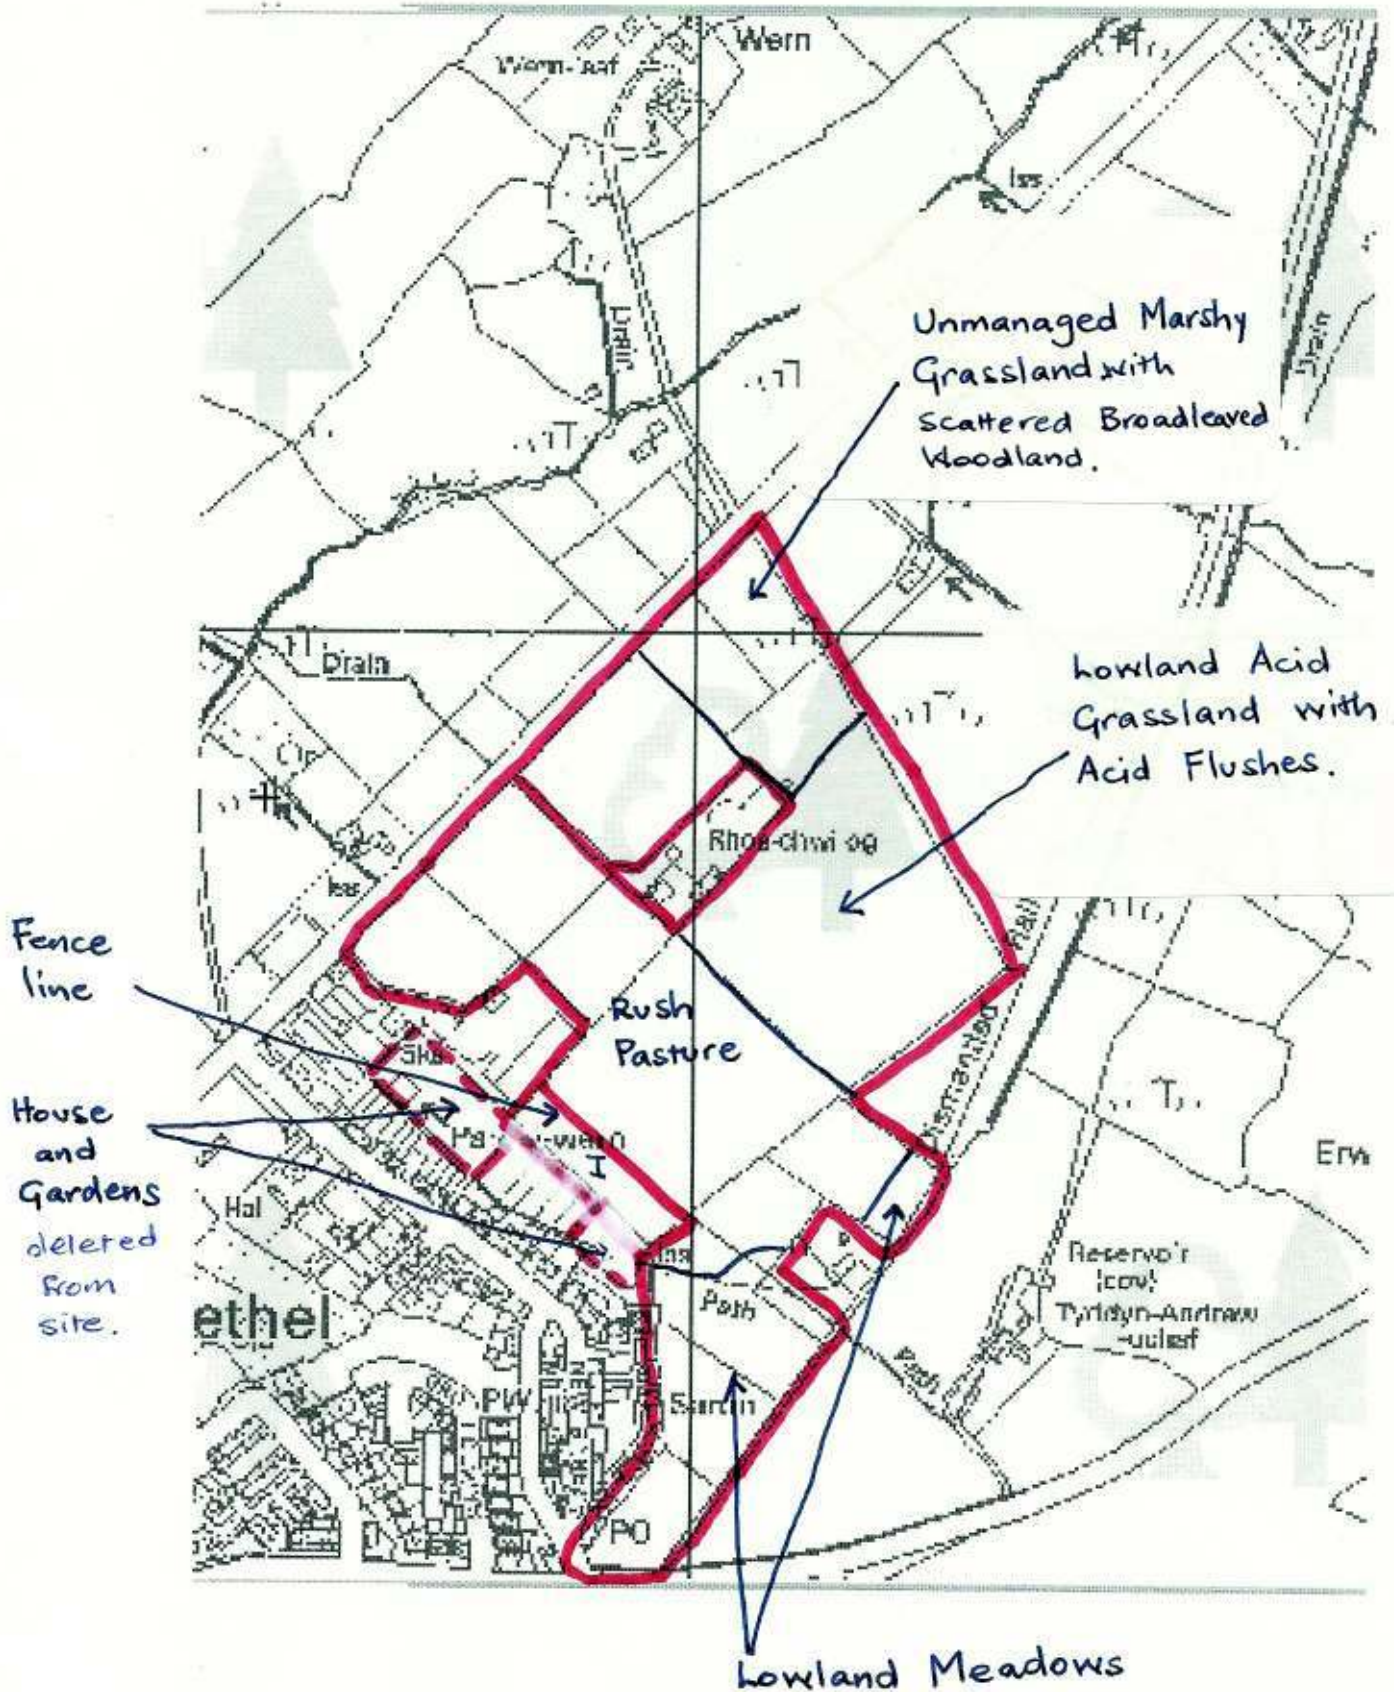 Wern
Iss
Drain
Drain
Unmanaged Marshy
Grassland with
Scattered Broadleaved
Woodland.
Drain
Lowland Acid
Grassland with
Acid Flushes.
Iss
Fence
line
Rush
Pasture
Dismantled
House
and
Gardens
deleted
from
site.
I
Hal
Erw
Reservoir
(cov)
Tyddyn-Andrew
-uchaf
Path
Path
ethel
PW
PO
Lowland Meadows